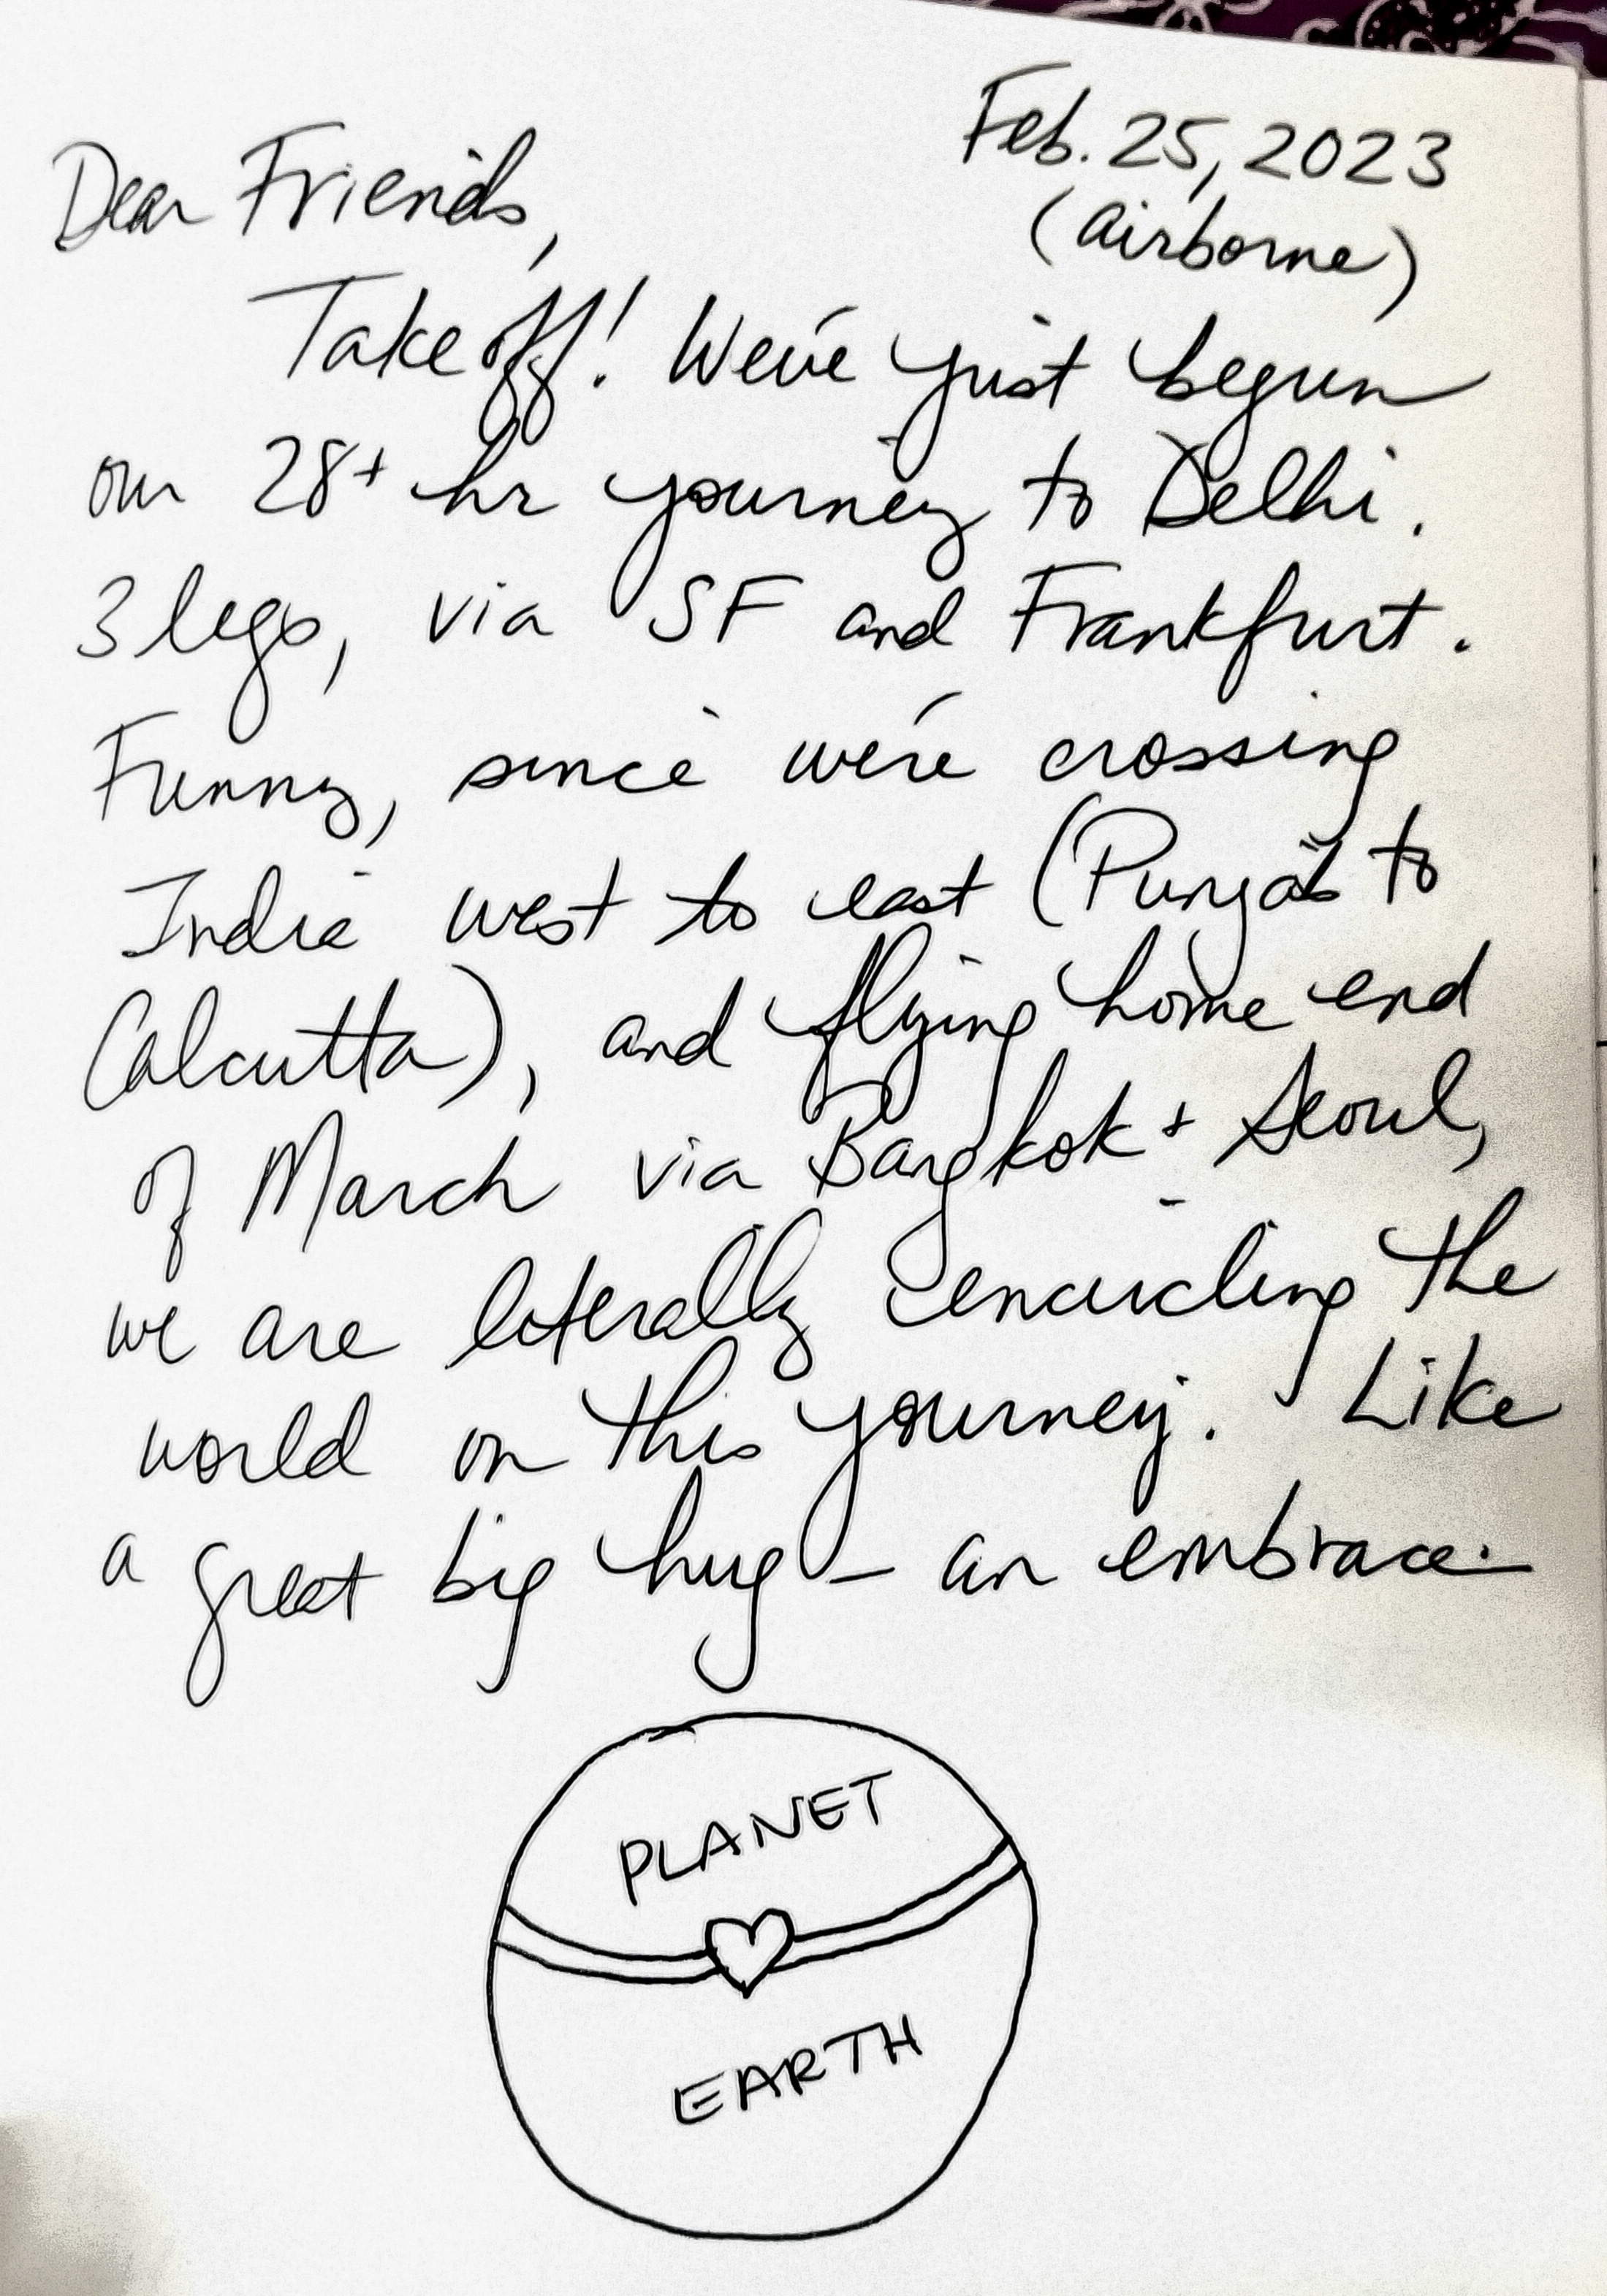 Feb. 25, 2023
(airborne)
Dear Friends,
Takeoff! We've just begun
our 28+ hr journey to Delhi.
3 legs, via SF and Frankfurt.
Funny, since we're crossing
India west to east (Punjab to
Calcutta), and flying home end
of March via Bangkok + Seoul,
we are literally encircling the
world on this journey. Like
a great big hug — an embrace.
PLANET
EARTH